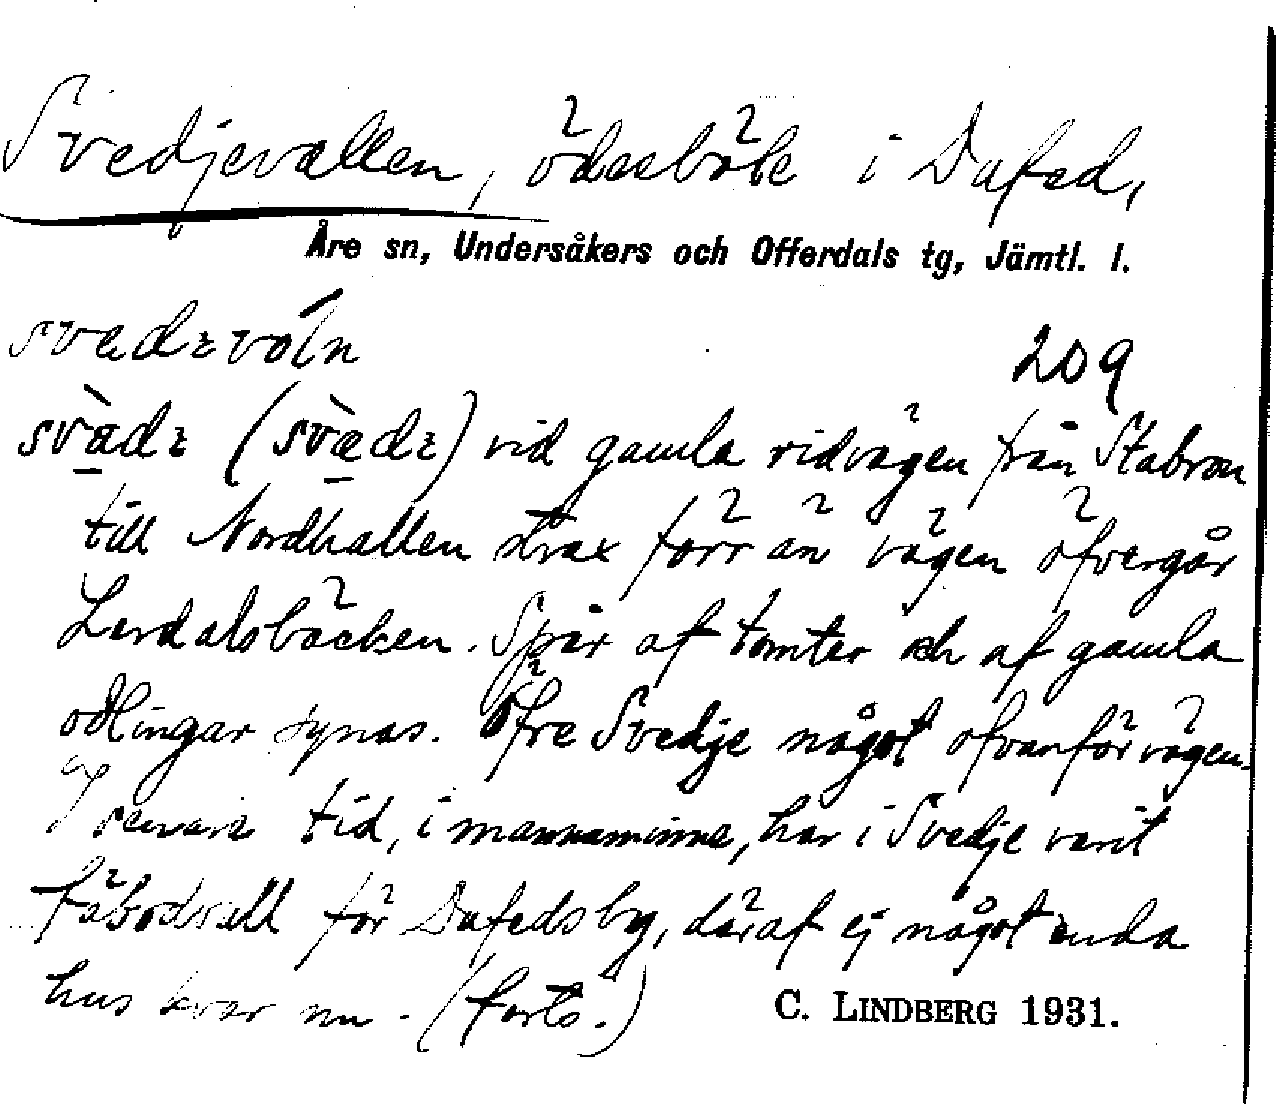 Svedjevallen, ödesböle i Dufed,
Åre sn, Undersåkers och Offerdals tg, Jämtl. l.
svedɛvóln
209
svàdɛ (svædɛ) vid gamla ridvägen från Stabron
till Nordhallen strax förr än vägen öfvergår
Lerdalsbäcken. Spår af tomter och af gamla
odlingar synas. Öfre Svedje något ofvanför vägen.
I senare tid, i mannaminne, har i Svedje varit
fäbodvall för Dufedsby, däraf ej något enda
hus kvar nu. (forts.)
C. LINDBERG 1931.